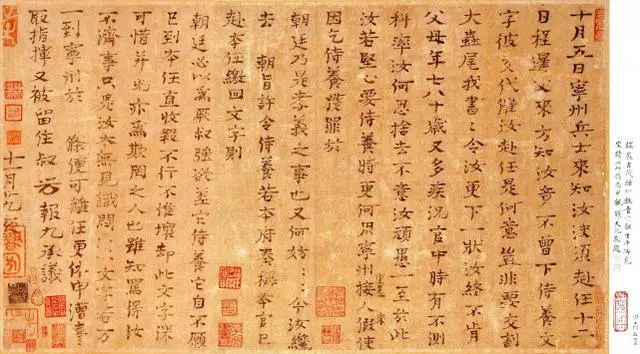 十月五日寧州兵士來知汝決須赴任十二
日程遵父來方知汝竟不曾下侍養文
字彼久代汝赴任是何意豈非要交割
大蟲尾我書令汝更下一狀汝終不肯
父母年七八十歲又多疾官中時有不測
科率汝何忍捨去不意汝頑愚一至於此
汝若堅心要侍養時更何用寧州接人假使
因乞侍養獲罪於
朝廷乃是孝義之事也又何妨今汝纔
去 朝旨許令侍養若本府奏稱本官已
赴本任繳回文字則
朝廷必以為厥叔強欲差官侍養它自不願
已到本任直收殺不行不惟壞却此文字深
可惜并亦為欺罔之人也雖知罵得汝
不濟事只是汝太無見識文字若下
一到寧州於 條便可離任更休申漕臺
取指揮又被留住叔 報九承議
十月九日